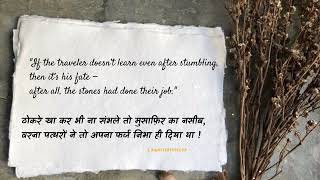 "If the traveler doesn't learn even after stumbling,
then it's his fate –
after all, the stones had done their job."
ठोकरे खा कर भी ना संभले तो मुसाफ़िर का नसीब,
वरना पत्थरों ने तो अपना फर्ज निभा ही दिया था !